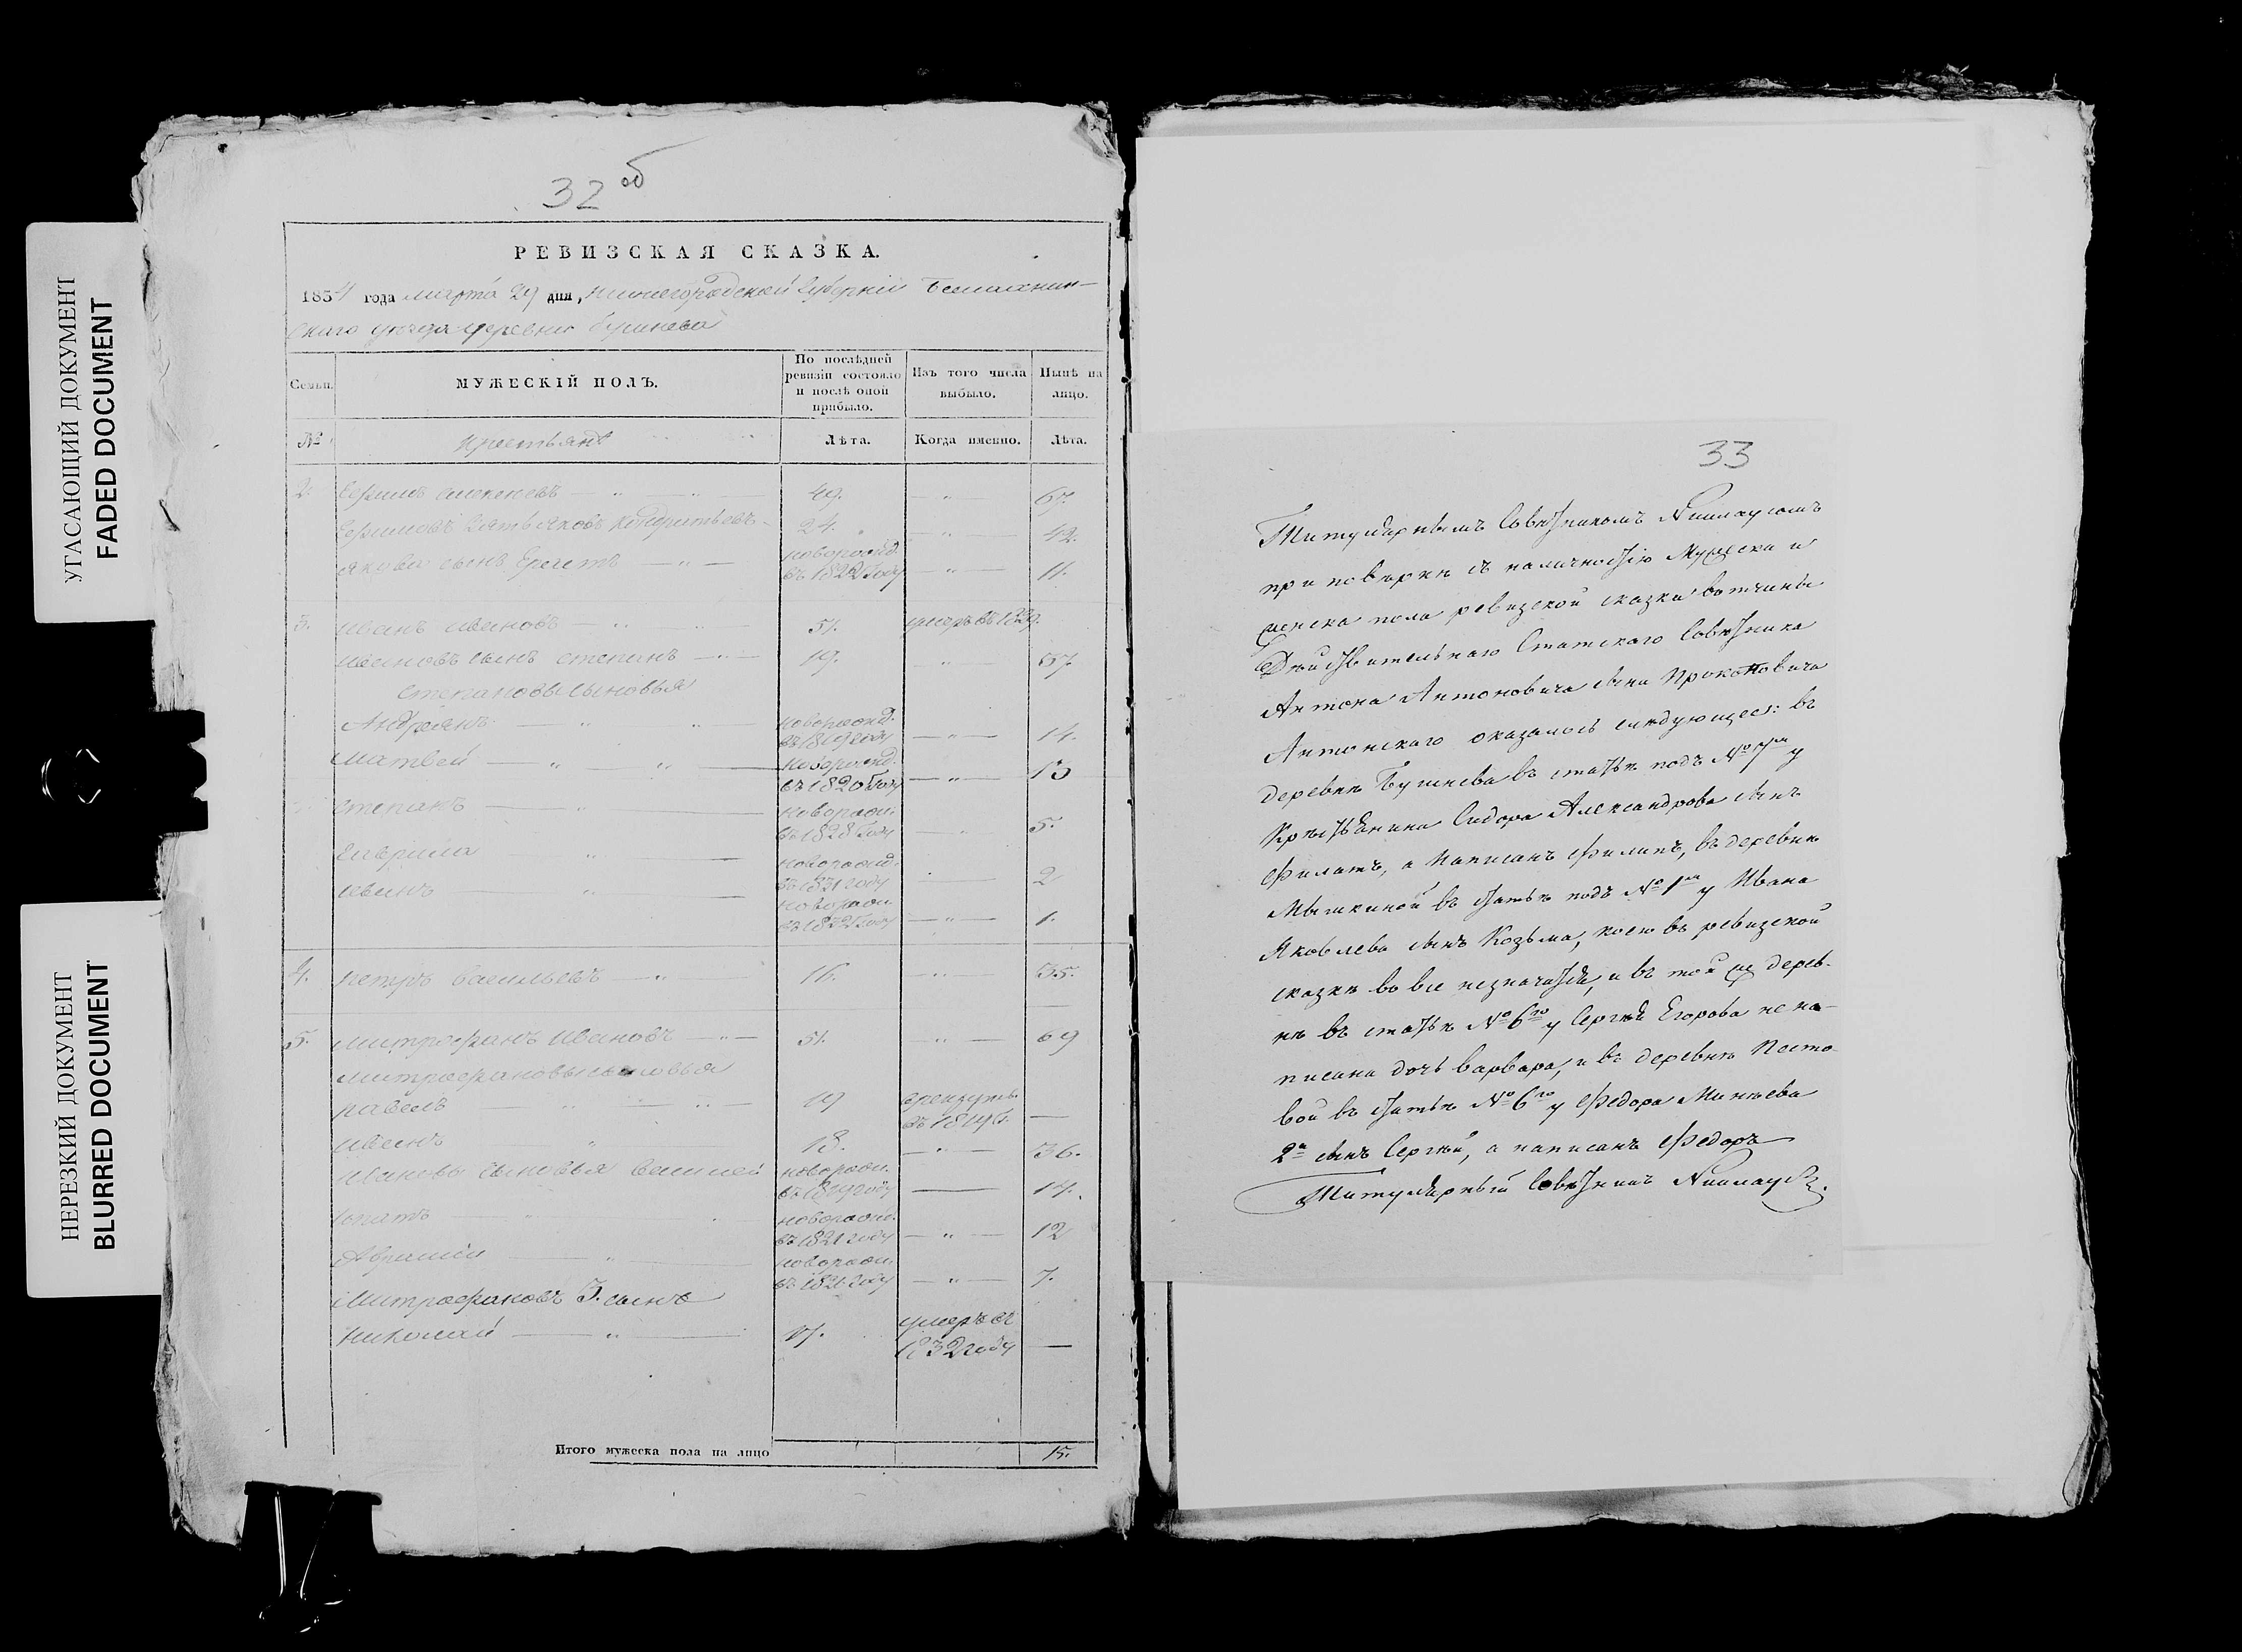 УГАСАЮЩИЙ ДОКУМЕНТ
FADED DOCUMENT
НЕРЕЗКИЙ ДОКУМЕНТ
BLURRED DOCUMENT
32 об
РЕВИЗСКАЯ СКАЗКА.
1834 года марта 29 дня, Нижегородской губерніи Балахнин-
скаго уезда деревни Бушнева
Семьи. МУЖЕСКІЙ ПОЛЪ. По послѣдней ревизіи состояло и послѣ оной прибыло. Изъ того числа выбыло. Нынѣ на лицо.
№ Крестьянѣ Лѣта. Когда именно. Лѣта.
2. Ефимъ 49. — „ — 67.
Ефимовъ зять Яковъ Кондратьевъ 24. — „ — 42.
Якова сынъ новорожд. въ 1822 году — „ — 11.
3. Иванъ Ивановъ — „ 51. умеръ въ
Ивановъ сынъ Степанъ — „ — 19. „ — 37.
Степановы сыновья
Андреянъ — „ новорожд. въ 1819 году — „ — 14.
Матвей — „ — „ — новорожд. въ 1820 году — „ — 13
Степанъ — „ — новорож. въ 1828 году — 5.
Гаврила „ — новорожд. въ 1831 году — 2
Иванъ — „ — новорож. въ 1832 году — „ — 1.
4. Петръ Васильевъ — „ — 16. — „ — 35.
5. Митрофанъ Ивановъ — „ — 51. — „ — 69
Митрофановы сыновья
Павелъ 19 —
Иванъ „ 18. — „ — 36.
Ивановы сыновья новорож. въ 1819 году — 14.
новорожд. въ 1821 году — „ — 12
новорож. въ 1826 году — „ — 7.
Митрофановъ 3. сынъ
Николай — „ — умеръ въ 1832 году —
Итого мужеска пола на лицо 15.
33
Титулярнымъ Совѣтникомъ
при повѣркѣ съ наличностію Мужеска и
женска пола ревизской сказки вотчины
Дѣйствительнаго Статскаго Совѣтника
Антона Антоновича сына Прокоповича
Антонскаго оказалось слѣдующее: въ
деревнѣ Бушнева въ статьѣ подъ № 7мъ у
Крѣстьянина Сидора Александрова сынъ
Филатъ, а написанъ Филипъ, въ деревнѣ
Мышкиной въ статьѣ подъ № 1мъ у Ивана
Яковлева сынъ Козьма, коего въ ревизской
сказкѣ во все незначится, и въ той же дерев-
нѣ въ статьѣ № 6го у Сергѣя Егорова не на-
писана дочь Варвара, и въ деревнѣ Песто-
вой въ статьѣ № 6го у Федора Минѣева
2й сынъ Сергѣй, а написанъ Федоръ
Титулярный Совѣтникъ